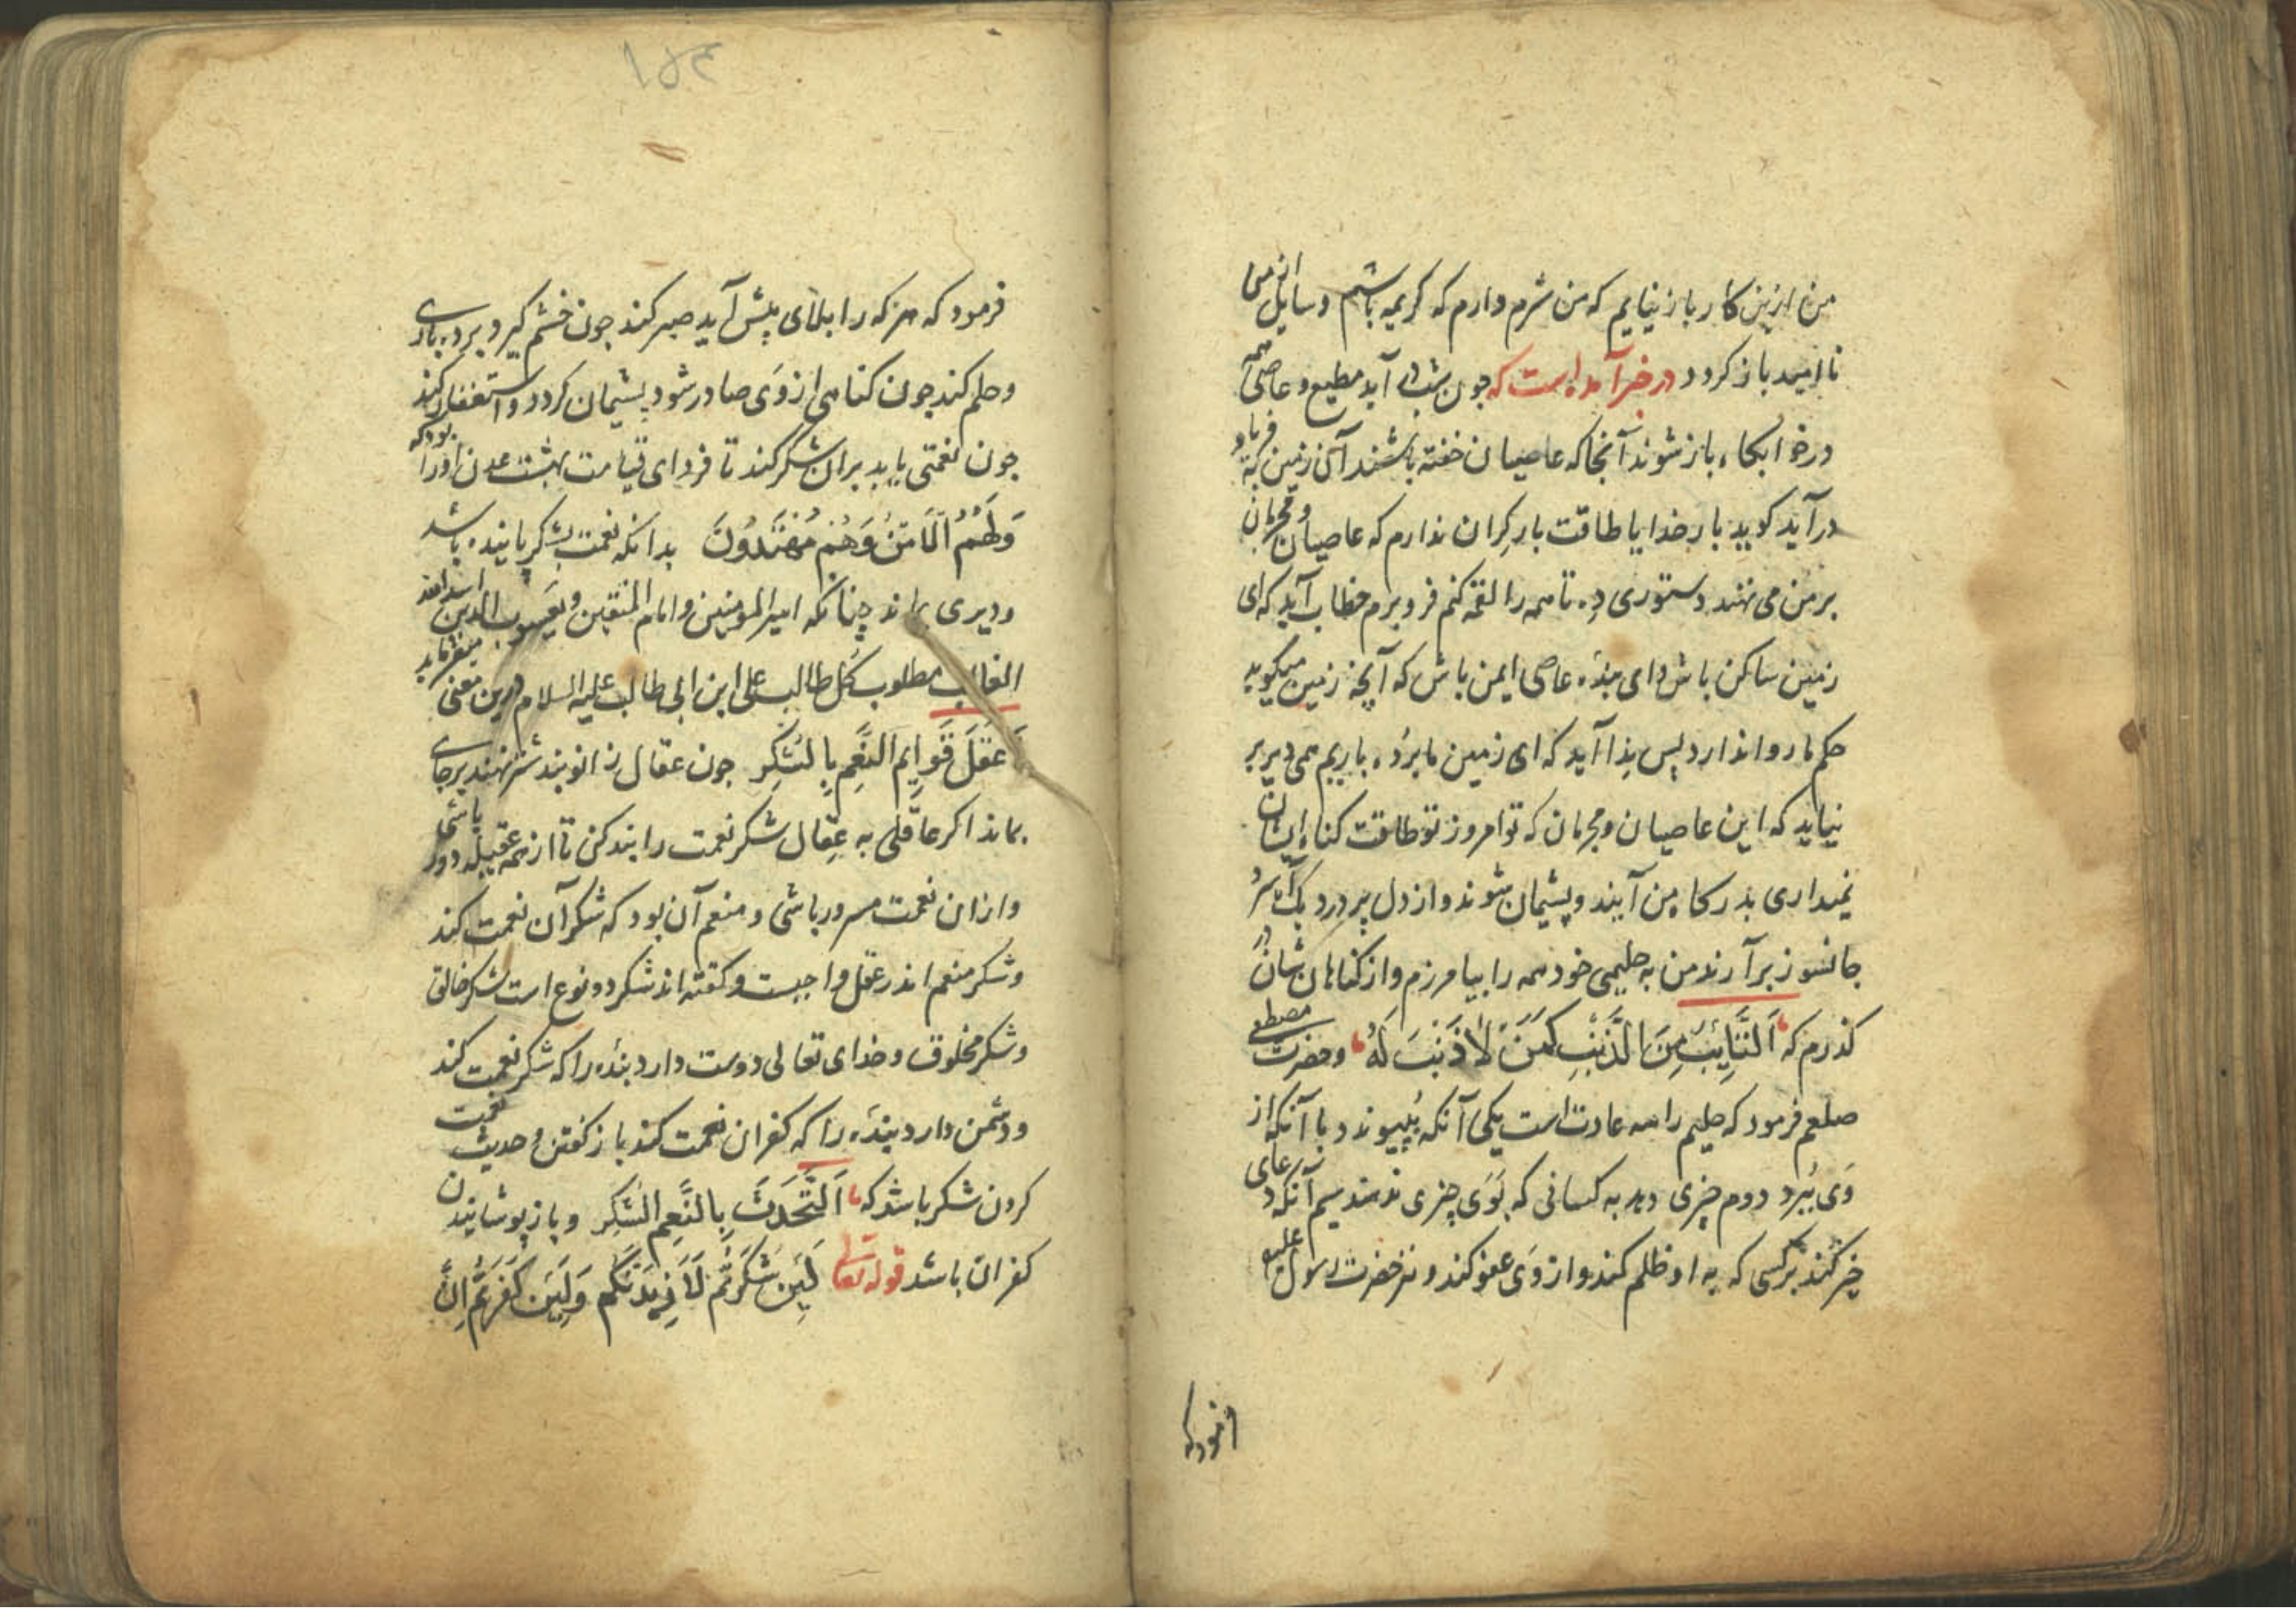 من ازین کار باز نیایم که من شرم دارم که کریم باشم و سایل از من
ناامید باز کردد در خبر آمده است که جون شب در آید مطیع و عاصی همه
در خوابکاه باز شوند آنجا که عاصیان خفته باشند آن زمین بفریاد
درآید کوید بار خدایا طاقت بار کران ندارم که عاصیان و مجرمان
بر من می نهند دستوری ده تا همه را لقمه کنم فرو برم خطاب آید که ای
زمین ساکن باش و ای بنده عاصی ایمن باش که آنچه زمین میکوید
حکم ما روا ندارد پس ندا آید که ای زمین ما برده باریم همی دیر بر
نیاید که این عاصیان و مجرمان که تو امروز تو طاقت کناه ایشان
نمیداری بدرکاه من آیند و پشیمان شوند و از دل پر درد یک آه سرد
جانسوز برآرند من به حلیمی خود همه را بیامرزم و از کناهان شان در
کذرم که اَلتَّایِبُ مِنَ الذَّنْبِ کَمَنْ لَا ذَنْبَ لَهُ و حضرت مصطفی
صلعم فرمود که حلیم را سه عادت است یکی آنکه بپیوندد با آنکه از
وَی بُبرد دوم چیزی دهد به کسانی که بوَی چیزی ندهند سیم آنکه دعای
خیر کند بر کسی که به او ظلم کند و از وَی عفو کند و نیز حضرت رسول علیه
فرمود که
۱۵۴
فرمود که هر که را بلائی پیش آید صبر کند جون خشم کیرد برده باری
و حلم کند جون کناهی از وَی صادر شود پشیمان کردد و استغفار کند
جون نعمتی یابد بران شکر کند تا فردای قیامت بهشت عدن اورا بود که
وَلَهُمُ الْاَمْنُ وَهُمْ مُهْتَدُونَ بدانکه نعمت بشکر پاینده باشد
و دیری بماند چنانکه امیر المومنین و امام المتقین و یعسوب الدین اسدالله
الغالب مطلوب کل طالب علی ابن ابی طالب علیه السلام درین معنی میفرماید
عَقَلَ قَوَایِمِ النِّعَمِ بِالشُّکْرِ جون عقال زانوبند شتر نهند بر جای
بماند اکر عاقلی به عِقال شکر نعمت را بند کن تا از همه عقیله دور باشی
و از ان نعمت مسرور باشی و منعم آن بود که شکر آن نعمت کند
و شکر منعم اندر عقل واجبست و کفته اند شکر دو نوع است شکر خالق
و شکر مخلوق و خدای تعالی دوست دارد بنده را که شکر نعمت کند
و دشمن دارد بنده را که کفران نعمت کند باز کفتن و حدیث نعمت
کردن شکر باشد که اَلتَّحَدُّثُ بِالنِّعَمِ الشُّکْرِ و باز پوشانیدن
کفران باشد قوله تعالی لَئِنْ شَکَرْتُمْ لَاَزِیدَنَّکُمْ وَلَئِنْ کَفَرْتُمْ اِنَّ